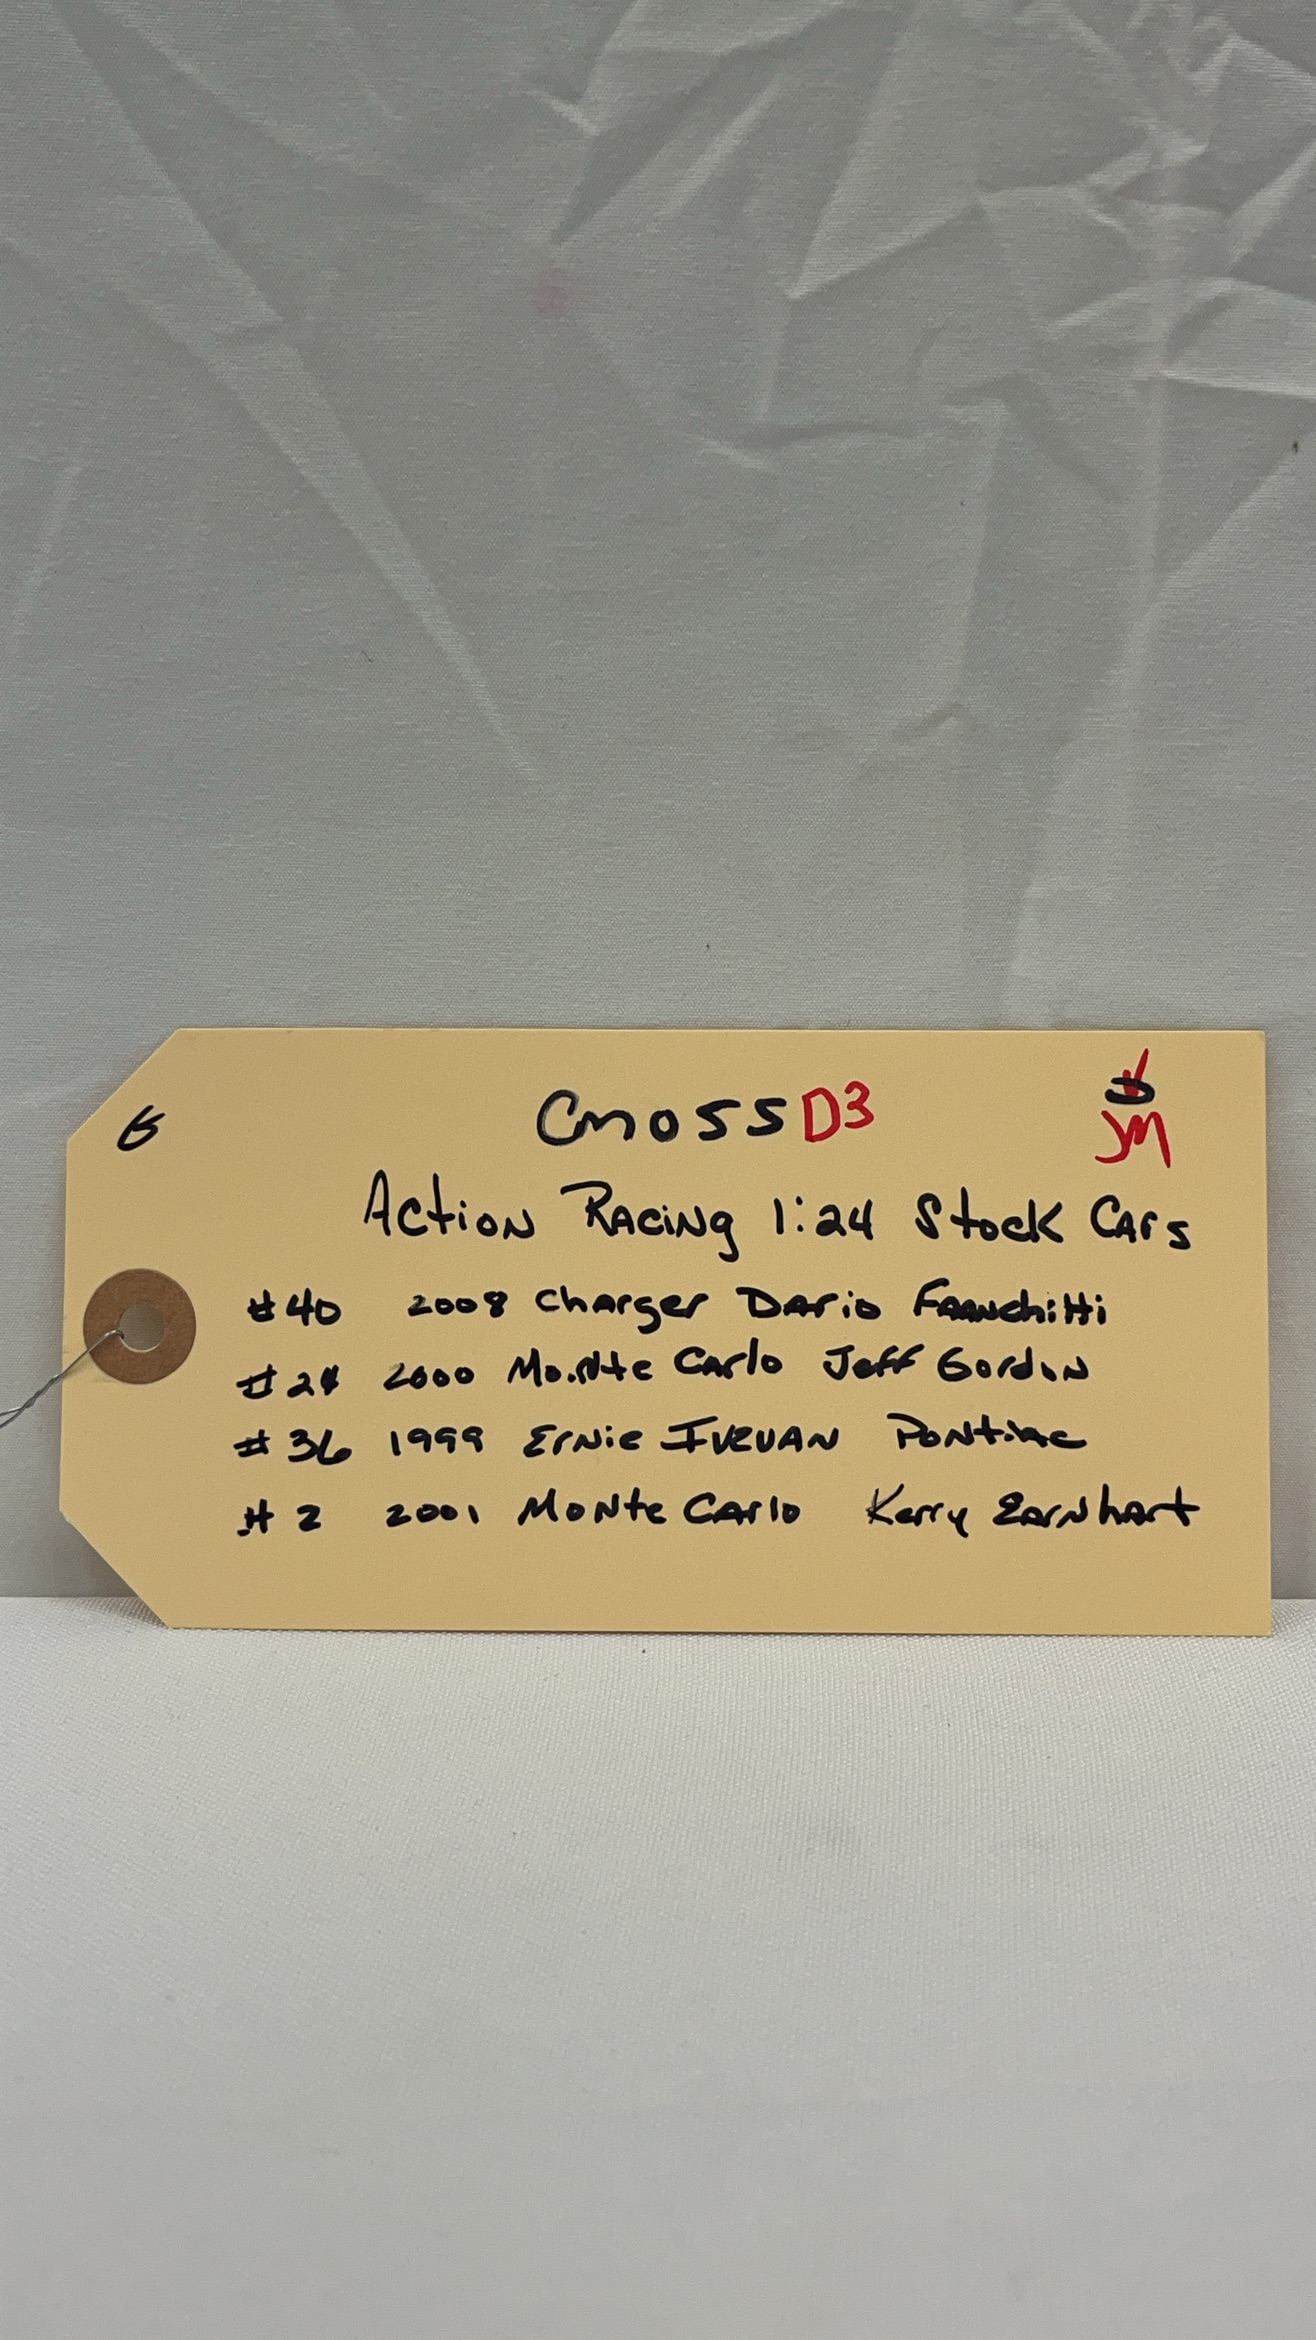 G
CM055D3
JM
Action Racing 1:24 Stock Cars
#40 2008 Charger Dario Franchitti
#24 2000 Monte Carlo Jeff Gordon
#36 1999 Ernie Irvan Pontiac
#2 2001 Monte Carlo Kerry Earnhart